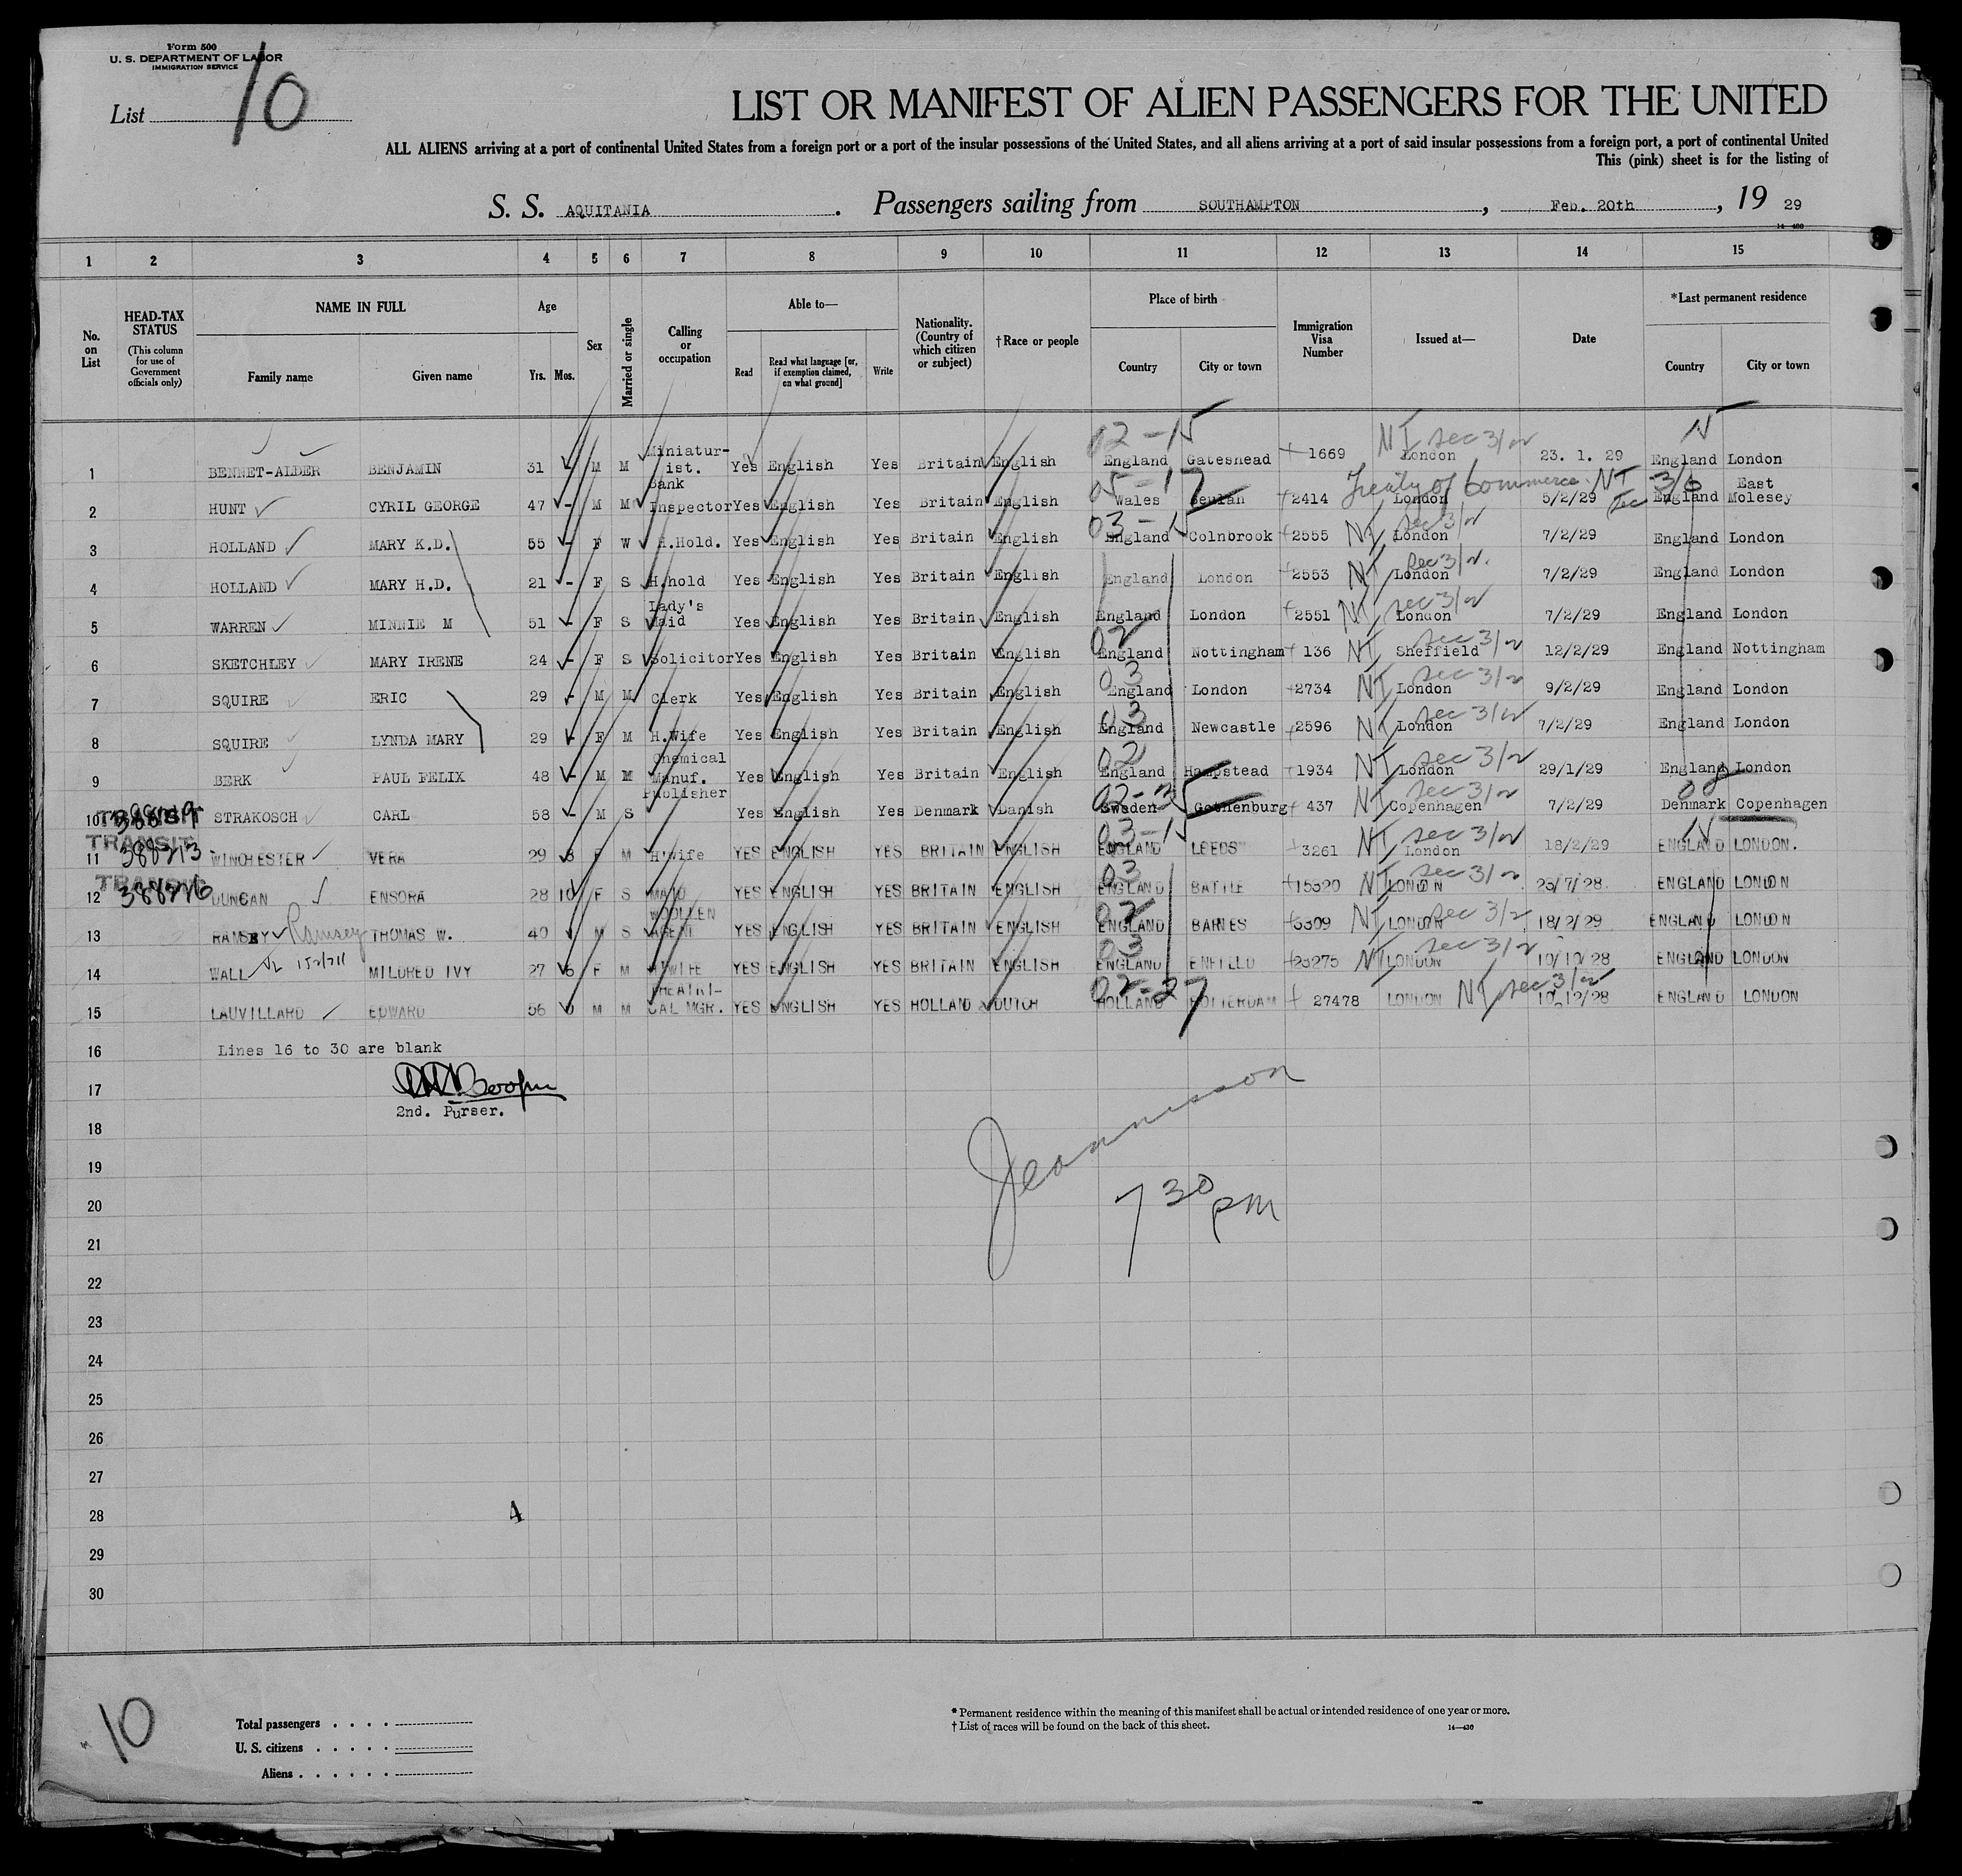 Form 500
U. S. DEPARTMENT OF LABOR
IMMIGRATION SERVICE
List 10
LIST OR MANIFEST OF ALIEN PASSENGERS FOR THE UNITED
ALL ALIENS arriving at a port of continental United States from a foreign port or a port of the insular possessions of the United States, and all aliens arriving at a port of said insular possessions from a foreign port, a port of continental United
This (pink) sheet is for the listing of
S. S. AQUITANIA . Passengers sailing from SOUTHAMPTON , Feb. 20th , 19 29
1 2 3 4 5 6 7 8 9 10 11 12 13 14 15
No. on List
HEAD-TAX STATUS (This column for use of Government officials only)
NAME IN FULL Family name Given name
Age Yrs. Mos.
Sex
Married or single
Calling or occupation
Able to— Read Read what language [or, if exemption claimed, on what ground] Write
Nationality. (Country of which citizen or subject)
†Race or people
Place of birth Country City or town
Immigration Visa Number
Issued at—
Date
*Last permanent residence Country City or town
1 BENNET-ALDER BENJAMIN 31 - M M Miniatur-ist. Yes English Yes Britain English 02-15 England Gateshead 1669 NI sec 3/2 London 23. 1. 29 England London
2 HUNT CYRIL GEORGE 47 - M M Bank Inspector Yes English Yes Britain English 05-17 Wales Beulah 2414 Treaty of Commerce London NI Sec 3/6 5/2/29 England East Molesey
3 HOLLAND MARY K.D. 55 - F W H.Hold. Yes English Yes Britain English 03-15 England Colnbrook 2555 NI sec 3/2 London 7/2/29 England London
4 HOLLAND MARY H.D. 21 - F S H.hold Yes English Yes Britain English England London 2553 NI sec 3/2 London 7/2/29 England London
5 WARREN MINNIE M 51 - F S Lady's Maid Yes English Yes Britain English England London 2551 NI sec 3/2 London 7/2/29 England London
6 SKETCHLEY MARY IRENE 24 - F S Solicitor Yes English Yes Britain English 02 England Nottingham 136 NI sec 3/2 Sheffield 12/2/29 England Nottingham
7 SQUIRE ERIC 29 - M M Clerk Yes English Yes Britain English 03 England London 2734 NI sec 3/2 London 9/2/29 England London
8 SQUIRE LYNDA MARY 29 - F M H.Wife Yes English Yes Britain English 03 England Newcastle 2596 NI sec 3/2 London 7/2/29 England London
9 BERK PAUL FELIX 48 - M M Chemical Manuf. Yes English Yes Britain English 02 England Hampstead 1934 NI sec 3/2 London 29/1/29 England London
10 STRAKOSCH CARL 58 - M S Publisher Yes English Yes Denmark Danish Sweden Gothenburg 437 NI sec 3/2 Copenhagen 7/2/29 08 Denmark Copenhagen
TRANSIT
11 388213 WINCHESTER VERA 29 F M H'Wife YES ENGLISH YES BRITAIN ENGLISH 03-15 ENGLAND LEEDS 3261 NI sec 3/2 London 18/2/29 ENGLAND LONDON.
TRANSIT
12 388216 DUNCAN ENSORA 28 10 F S MAID YES ENGLISH YES BRITAIN ENGLISH 03 ENGLAND BATTLE 15320 NI sec 3/2 LONDON 23/7/28 ENGLAND LONDON
13 RAMSEY Ramsey THOMAS W. 40 M S WOOLLEN AGENT YES ENGLISH YES BRITAIN ENGLISH 02 ENGLAND BARNES 3309 NI sec 3/2 LONDON 18/2/29 ENGLAND LONDON
14 WALL MILDRED IVY 27 F M H'WIFE YES ENGLISH YES BRITAIN ENGLISH 03 ENGLAND ENFIELD 23275 NI sec 3/2 LONDON 10/10/28 ENGLAND LONDON
15 LAUVILLARD EDWARD 56 M M THEATRI-CAL MGR. YES ENGLISH YES HOLLAND DUTCH 02-27 HOLLAND ROTTERDAM 27478 LONDON NI sec 3/2 10/12/28 ENGLAND LONDON
16 Lines 16 to 30 are blank
17
2nd. Purser.
18
19
20 7 30 pm
21
22
23
24
25
26
27
28 4
29
30
10
Total passengers
U. S. citizens
Aliens
* Permanent residence within the meaning of this manifest shall be actual or intended residence of one year or more.
† List of races will be found on the back of this sheet. 14—430